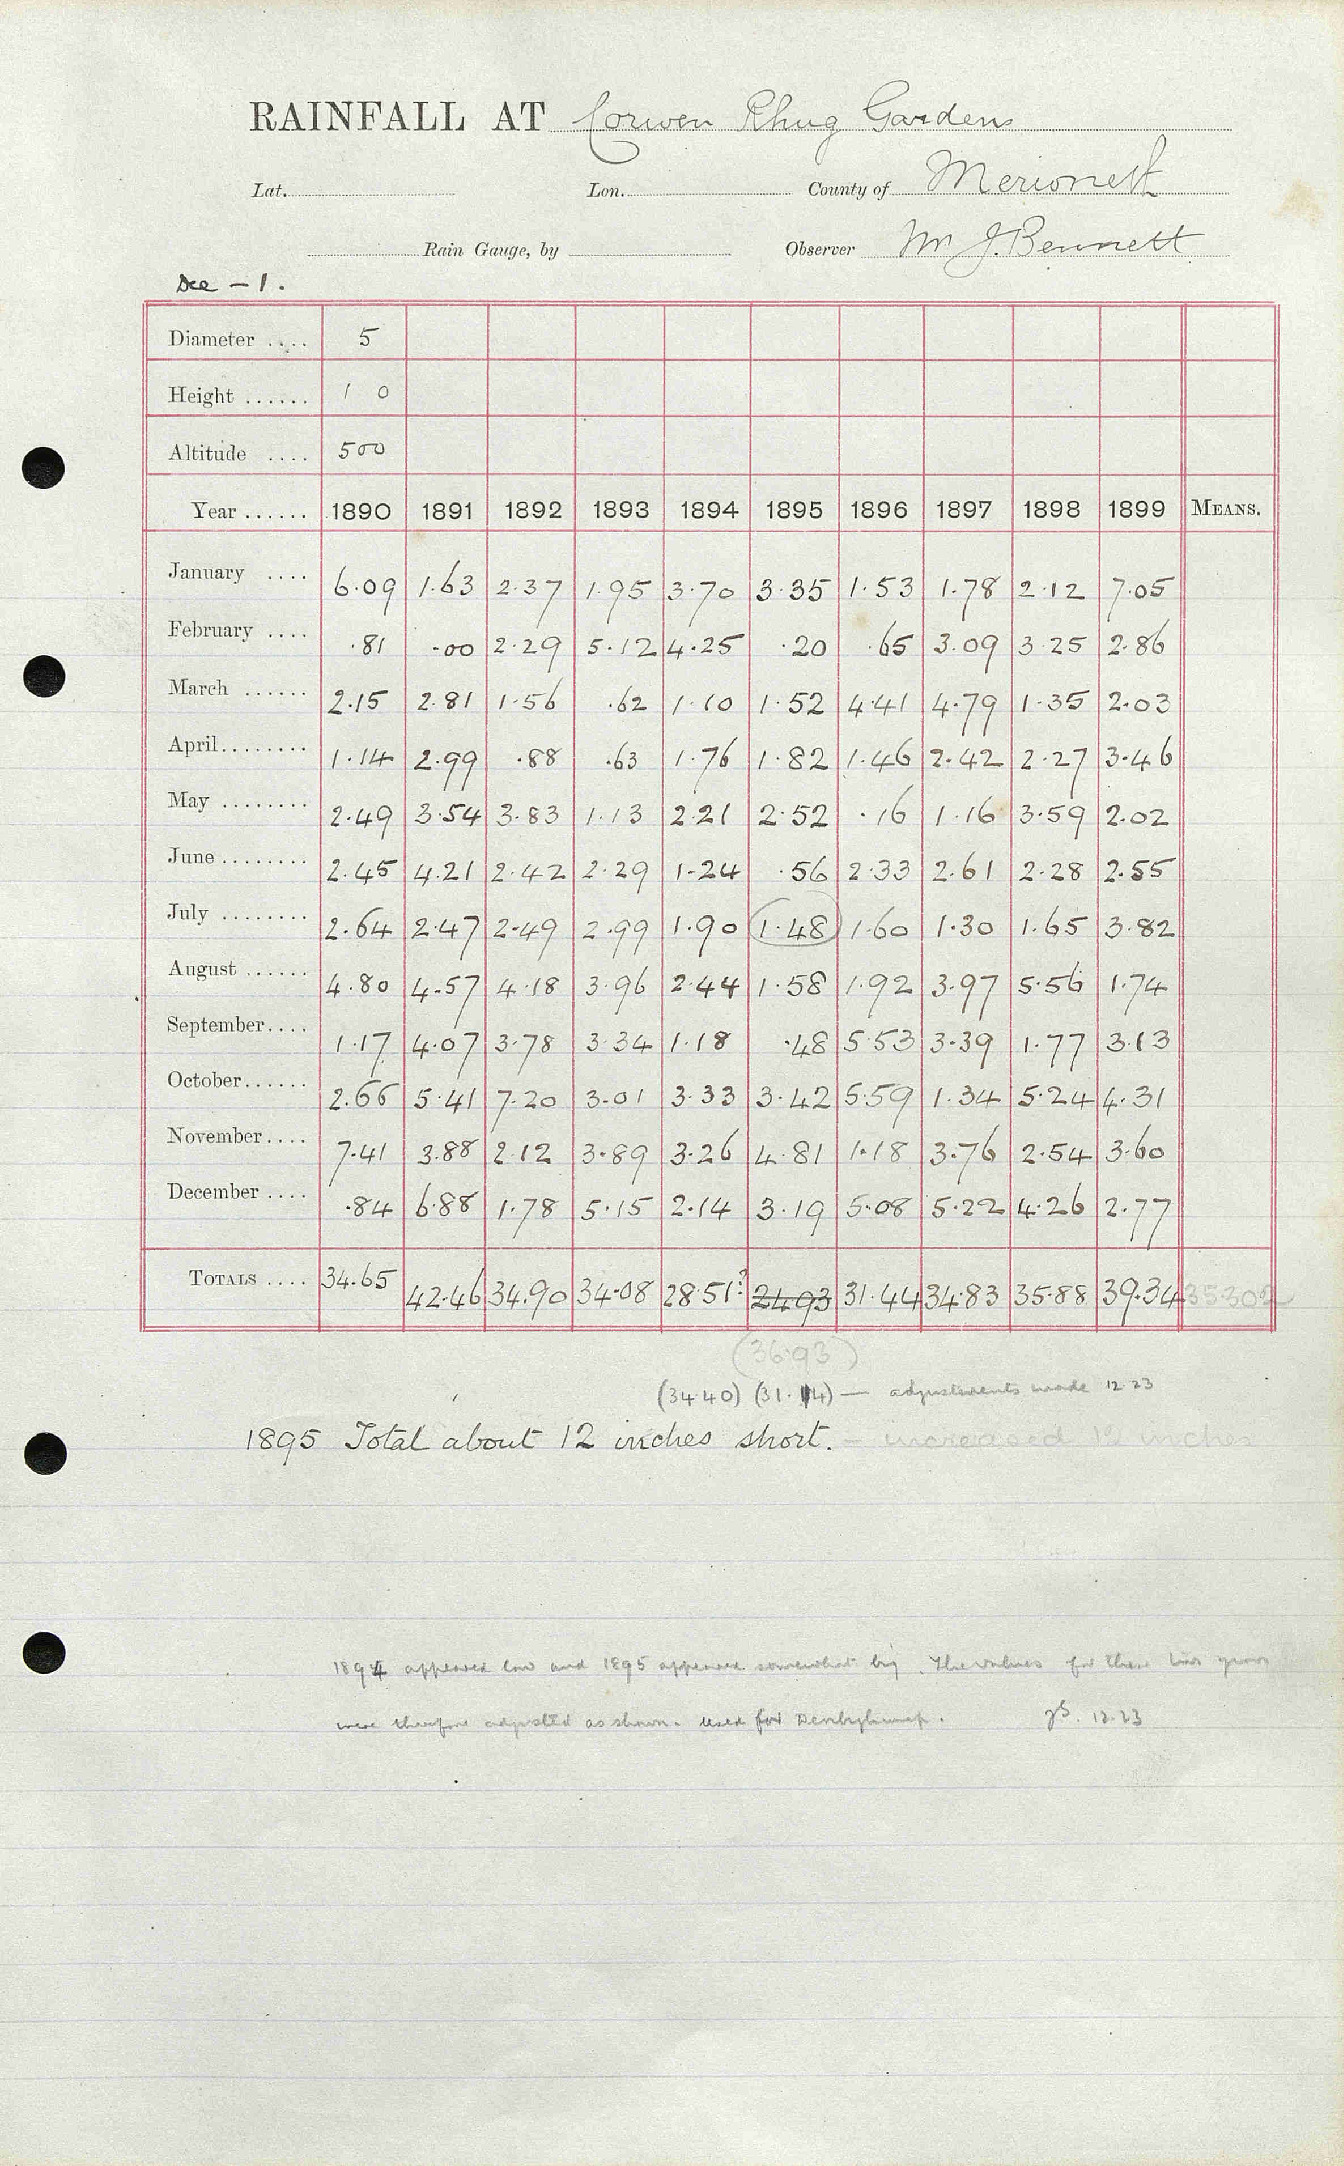 RAINFALL AT Corwen Rhug Gardens
Lat. Lon. County of Merioneth
Rain Gauge, by Observer Mr J. Bennett
Dee - 1.
Diameter .... 5
Height ...... 1 0
Altitude .... 500
Year ...... 1890 1891 1892 1893 1894 1895 1896 1897 1898 1899 MEANS.
January .... 6.09 1.63 2.37 1.95 3.70 3.35 1.53 1.78 2.12 7.05
February .... .81 .00 2.29 5.12 4.25 .20 .65 3.09 3.25 2.86
March ...... 2.15 2.81 1.56 .62 1.10 1.52 4.41 4.79 1.35 2.03
April........ 1.14 2.99 .88 .63 1.76 1.82 1.46 2.42 2.27 3.46
May ........ 2.49 3.54 3.83 1.13 2.21 2.52 .16 1.16 3.59 2.02
June ........ 2.45 4.21 2.42 2.29 1.24 .56 2.33 2.61 2.28 2.55
July ........ 2.64 2.47 2.49 2.99 1.90 1.48 1.60 1.30 1.65 3.82
August ...... 4.80 4.57 4.18 3.96 2.44 1.58 1.92 3.97 5.56 1.74
September.... 1.17 4.07 3.78 3.34 1.18 .48 5.53 3.39 1.77 3.13
October...... 2.66 5.41 7.20 3.01 3.33 3.42 5.59 1.34 5.24 4.31
November.... 7.41 3.88 2.12 3.89 3.26 4.81 1.18 3.76 2.54 3.60
December .... .84 6.88 1.78 5.15 2.14 3.19 5.08 5.22 4.26 2.77
TOTALS .... 34.65 42.46 34.90 34.08 28.51? 24.93 31.44 34.83 35.88 39.34 35.302
(36.93)
(34.40) (31.14) — adjustments made 12.23
1895 Total about 12 inches short. — increased 12 inches
1894 appeared low and 1895 appeared somewhat big. The values for these two years
were therefore adjusted as shown. Used for 12.23